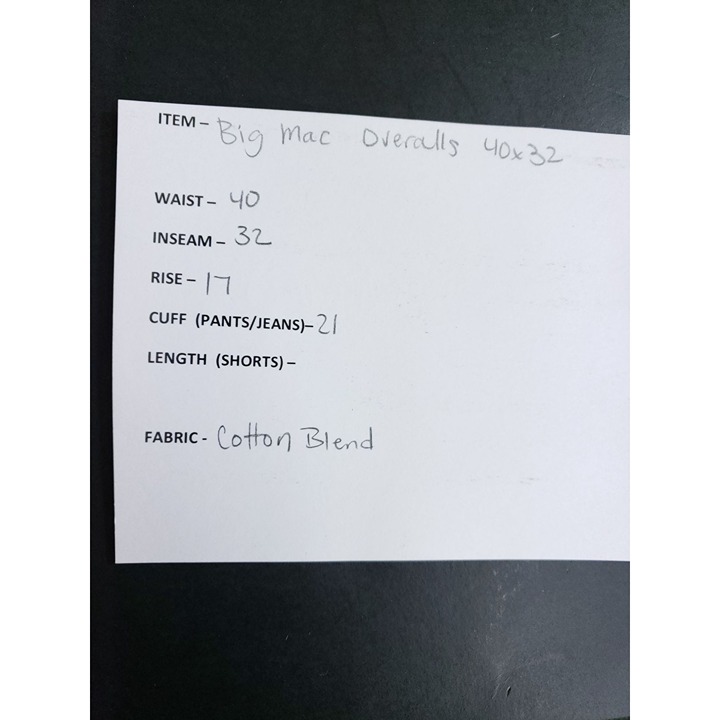 ITEM – Big Mac Overalls 40x32
WAIST – 40
INSEAM – 32
RISE – 17
CUFF (PANTS/JEANS)– 21
LENGTH (SHORTS) –
FABRIC - Cotton Blend